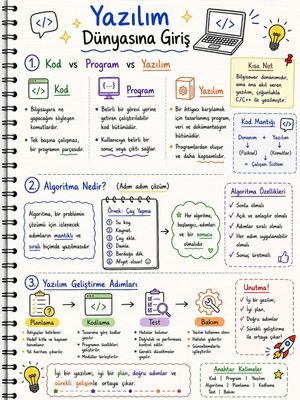 Yazılım
Dünyasına Giriş
</>
1. Kod vs Program vs Yazılım
</> Kod
Program
Yazılım
Bilgisayara ne
yapacağını söyleyen
komutlardır.
Tek başına çalışmaz,
bir programın parçasıdır.
Belirli bir görevi yerine
getiren çalıştırılabilir
kod bütünüdür.
Kullanıcıya belirli bir
sonuç veya çıktı sağlar.
Bir ihtiyacı karşılamak
için tasarlanmış program,
veri ve dokümantasyon
bütünüdür.
Programlardan oluşur
ve daha kapsamlıdır.
Kısa Not
Bilgisayar donanımıdır,
ama ona akıl veren
yazılımdır, çoğunlukla
C/C++ ile yazılmıştır.
Kod Mantığı
Donanım + Yazılım
(Fiziksel) (Komutlar)
= Çalışan Sistem
2. Algoritma Nedir? (Adım adım çözüm)
Algoritma, bir problemin
çözümü için izlenecek
adımların mantıklı ve
sıralı biçimde yazılmasıdır.
Örnek: Çay Yapma
1. Su koy.
2. Kaynat.
3. Çay ekle.
4. Demle.
5. Bardağa dök.
6. Afiyet olsun!
Her algoritma,
başlangıcı, adımları
ve bir sonucu
olmalıdır.
Algoritma Özellikleri
Sonlu olmalı
Açık ve anlaşılır olmalı
Adımlar sıralı olmalı
Her adım uygulanabilir
olmalı
Sonuç üretmeli
3. Yazılım Geliştirme Adımları
Planlama
Kodlama
Test
Bakım
İhtiyaçlar belirlenir.
Hedef kitle ve kapsam
tanımlanır.
Yol haritası çıkarılır.
Tasarıma göre kodlar
yazılır.
Program özellikleri
geliştirilir.
Modüller birleştirilir.
Hatalar bulunur.
Doğruluk ve performans
kontrol edilir.
Gerekli düzeltmeler
yapılır.
Yazılım kullanıma alınır.
Hatalar giderilir.
Unutma!
İyi bir yazılım;
iyi bir plan,
Doğru adımlar
Sürekli geliştirme
ile ortaya çıkar.
İyi bir yazılım; iyi bir plan, doğru adımlar ve
sürekli gelişimle ortaya çıkar.
Anahtar Kelimeler
Kod | Program | Yazılım
Algoritma | Planlama | Kodlama
Test | Bakım